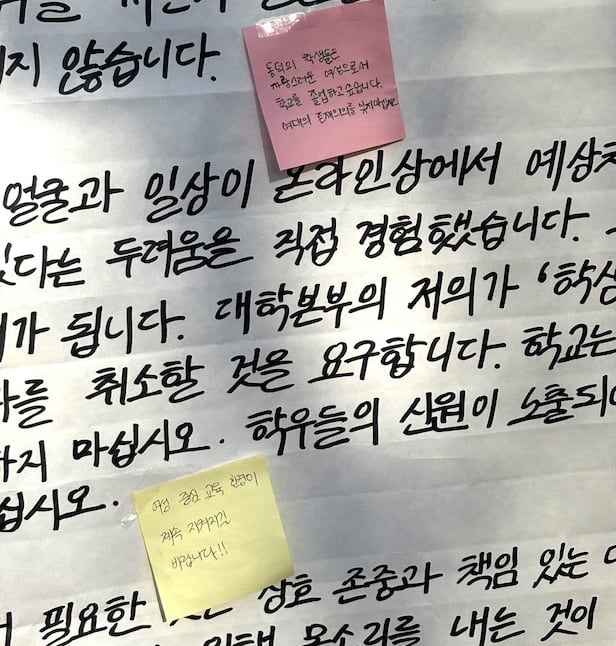 지 않습니다.
동덕의 학생들은
자랑스러운 여성으로서
학교를 졸업하고 싶습니다.
여대의 존재의의를 잊지마십시오
얼굴과 일상이 온라인상에서 예상치
있다는 두려움을 직접 경험했습니다.
가 됩니다. 대학본부의 저의가 '학생
를 취소할 것을 요구합니다. 학교는
하지 마십시오. 학우들의 신원이 노출되
십시오.
여성 중심 교육 환경이
계속 지켜지길
바랍니다!!
필요한 것은 상호 존중과 책임 있는
위해 목소리를 내는 것이